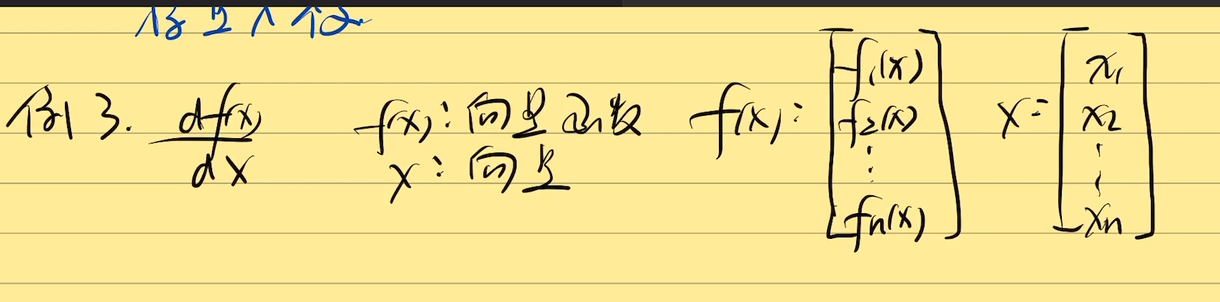 例3. df(x)/dX f(x): 向量函数 f(x): [f1(x) f2(x) ⋮ fn(x)] X = [x1 x2 ⋮ xn]
X: 向量